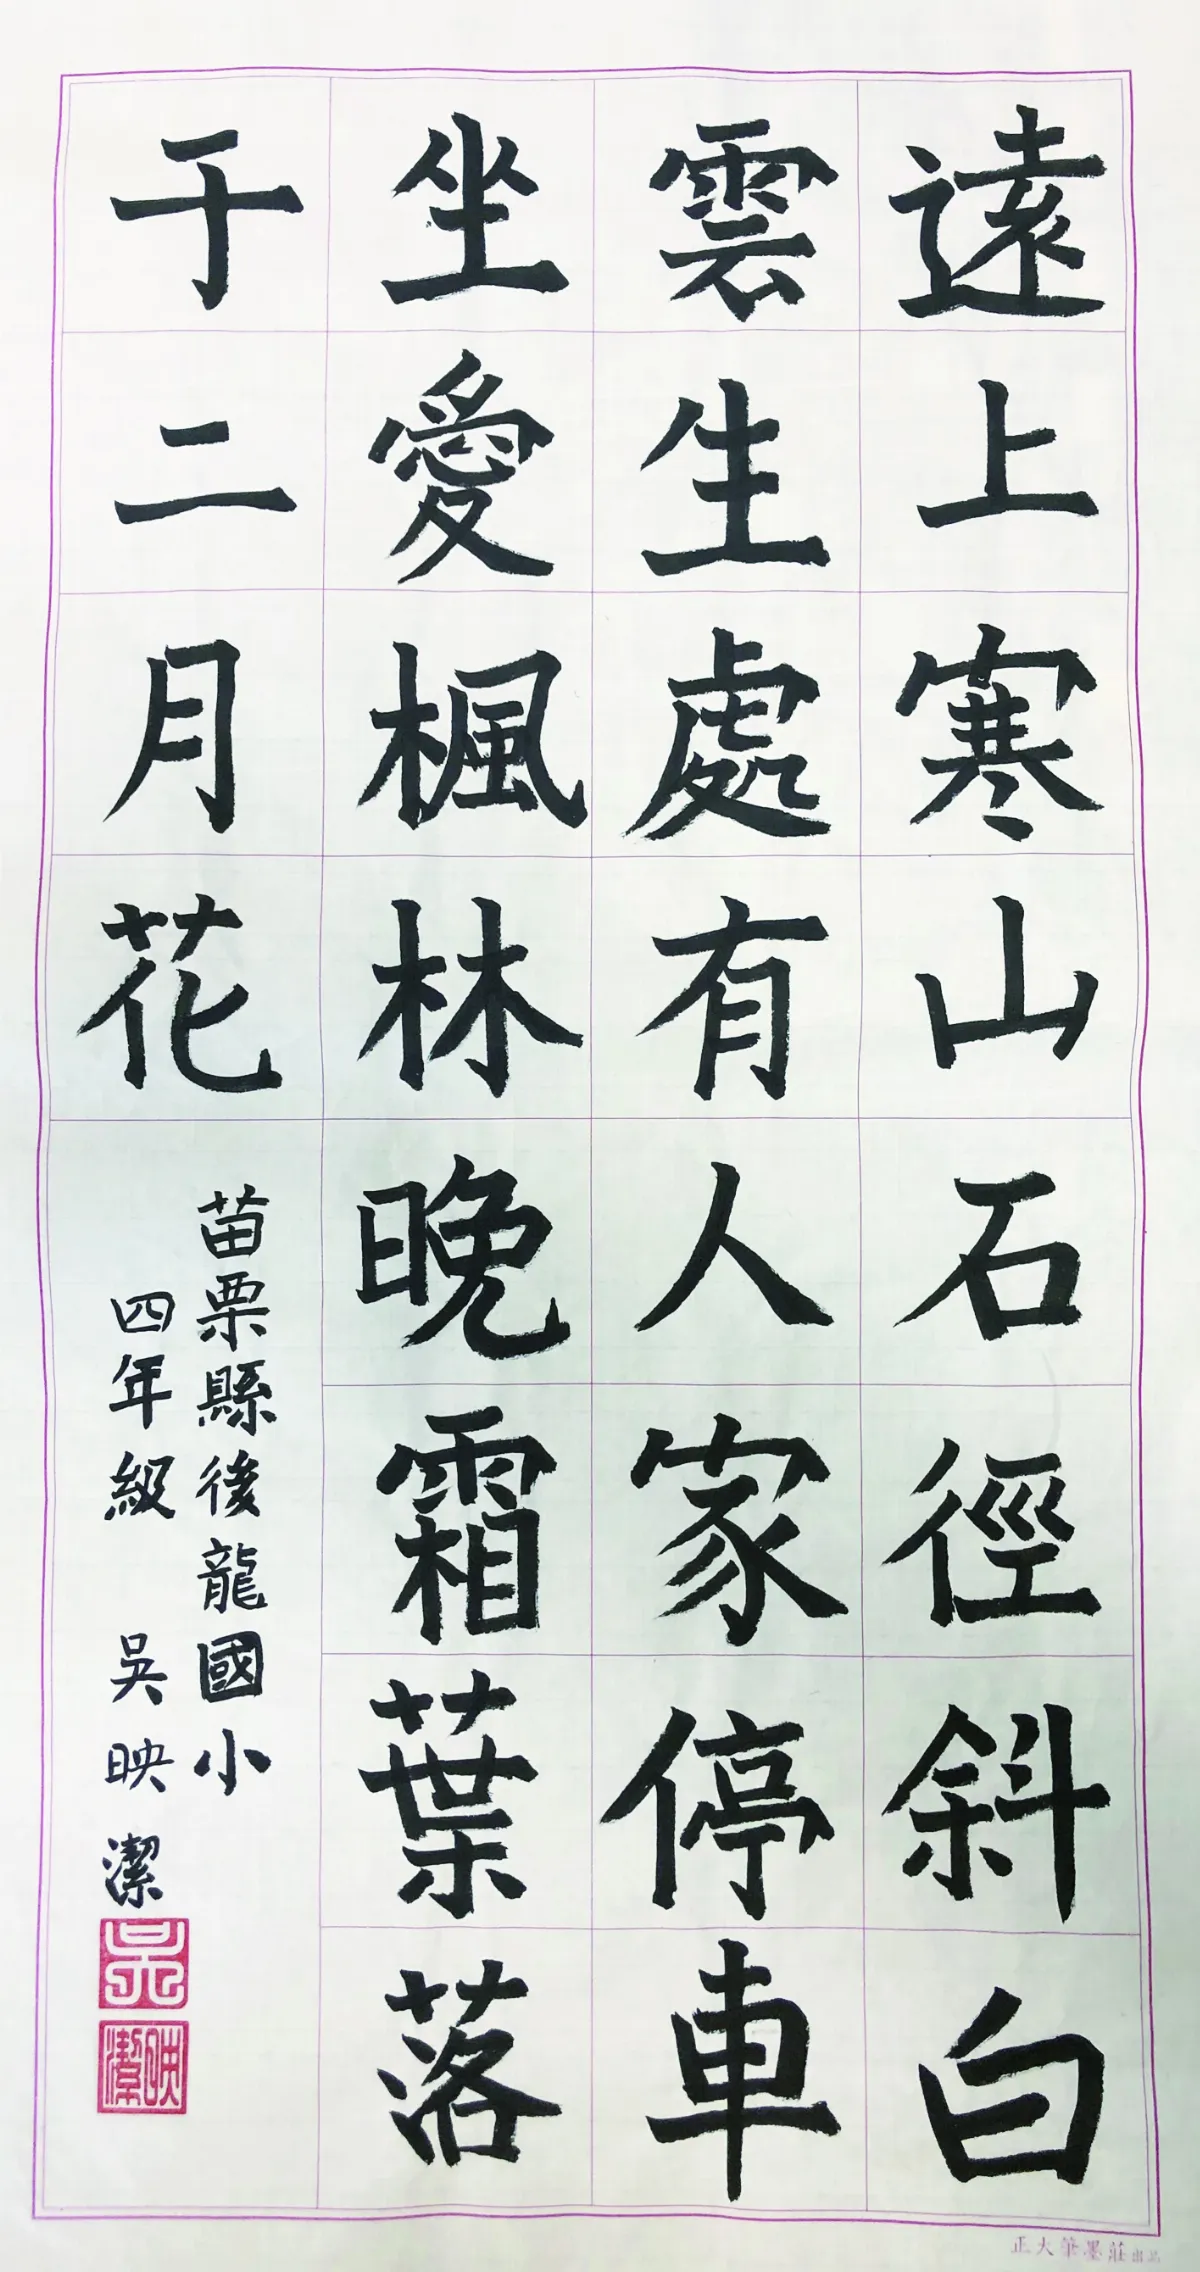 遠上寒山石徑斜白
雲生處有人家停車
坐愛楓林晚霜葉落
于二月花
苗栗縣後龍國小
四年級 吳映潔
吳
映潔
正大筆墨莊出品